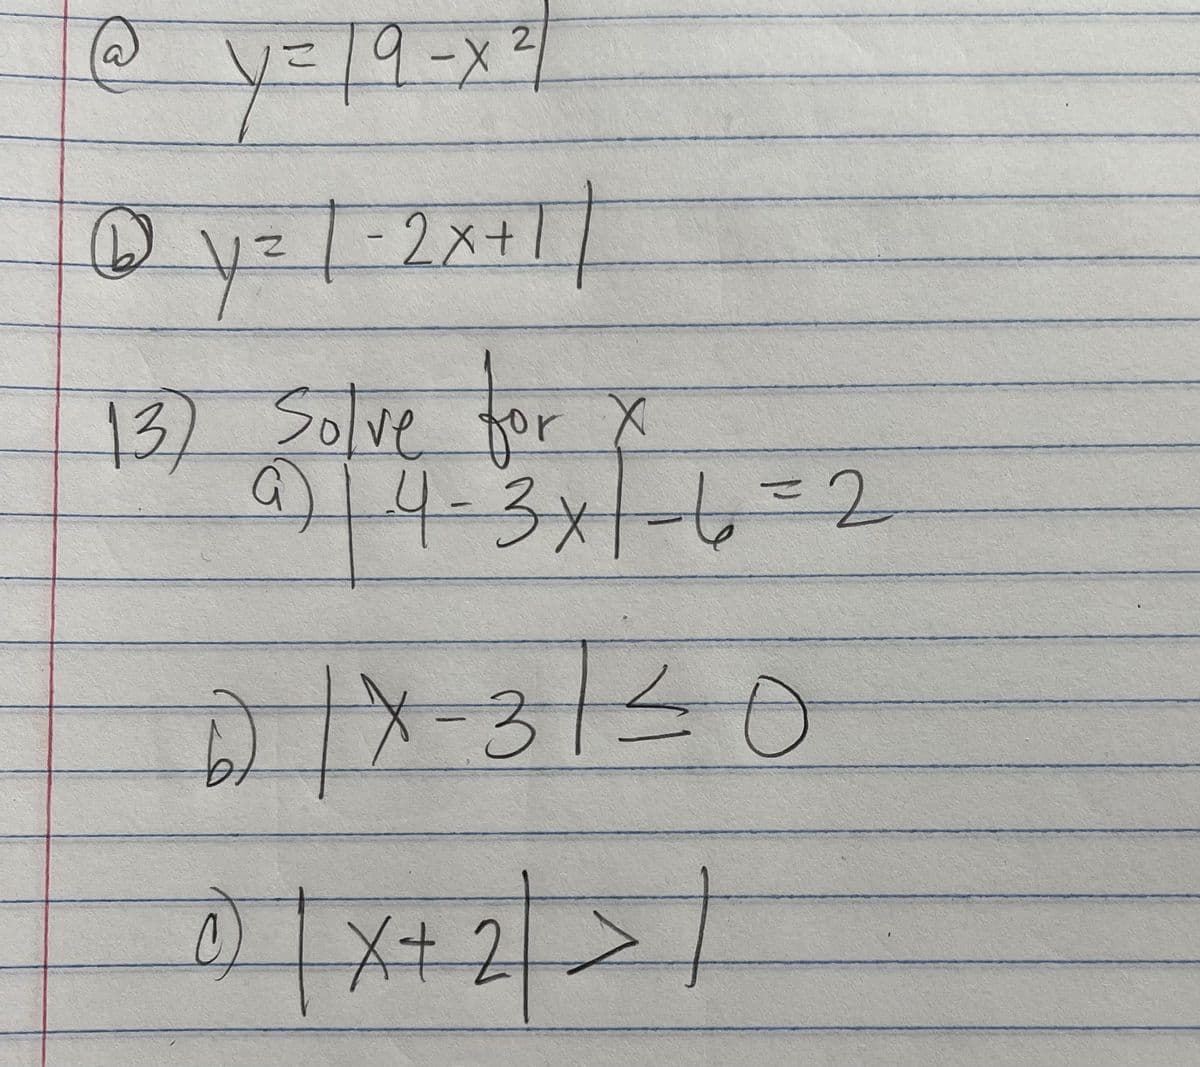 ⓐ y=|9-x²|
ⓑ y=|-2x+1|
13) Solve for x
a) |4-3x|-6=2
b) |x-3|≤0
c) |x+2|>1